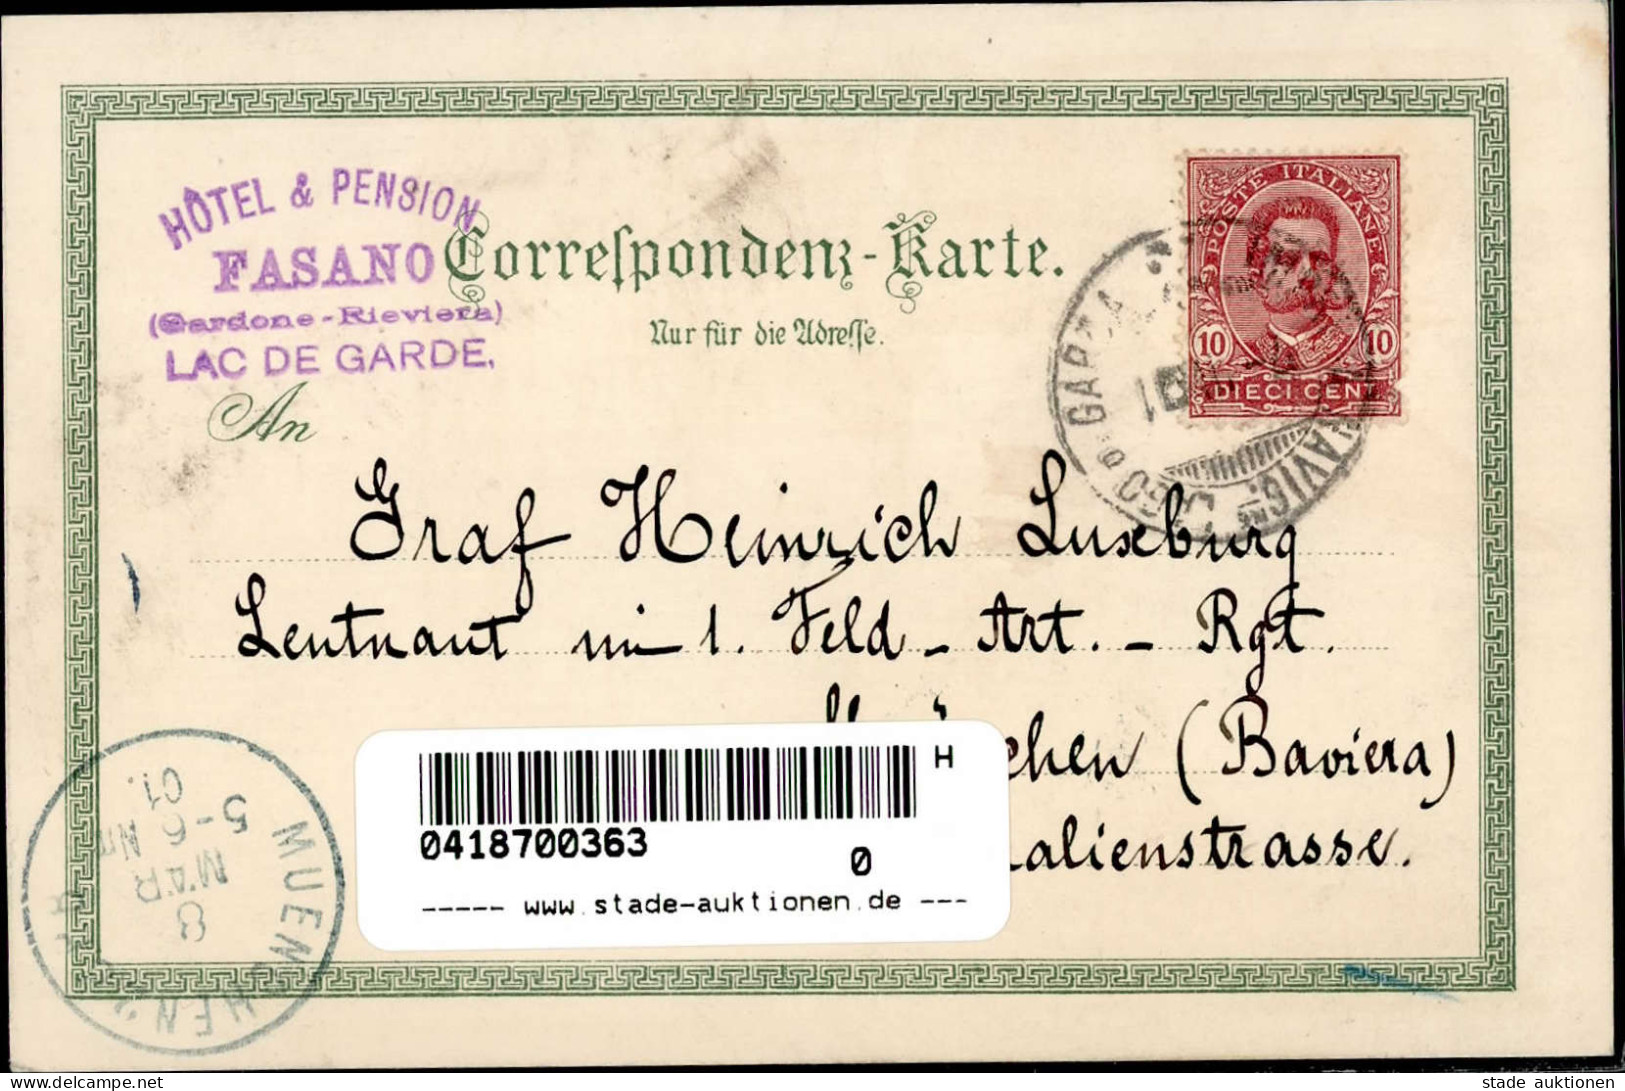 HÔTEL & PENSION
FASANO
(Gardone-Rieviera)
LAC DE GARDE.
Correspondenz-Karte.
Nur für die Adresse.
POSTE ITALIANE
10 10
DIECI CENT
GARDA
NAVIG.
An
Graf Heinrich Luxeburg
Leutnant im 1. Feld-Art.-Rgt.
chen (Baviera)
alienstrasse.
MUENCHEN
8
MAR
5-6 NM
01.
H
0418700363
0
----- www.stade-auktionen.de ---
stade auktionen